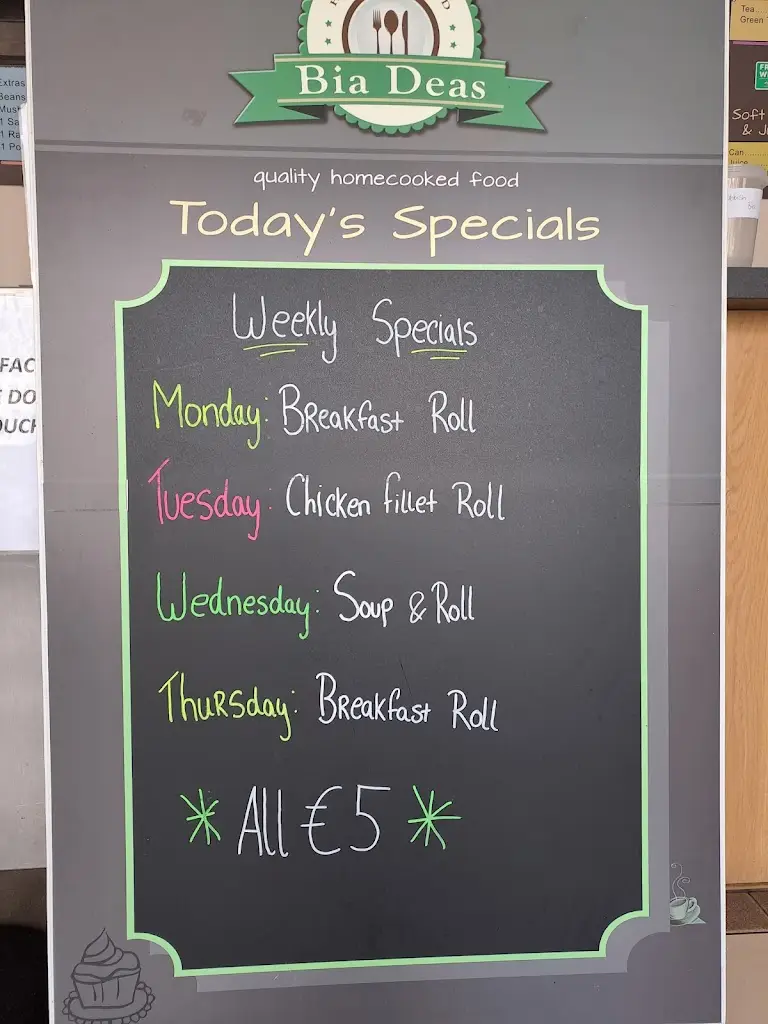 Bia Deas
quality homecooked food
Today's Specials
Weekly Specials
Monday: Breakfast Roll
Tuesday: Chicken fillet Roll
Wednesday: Soup & Roll
Thursday: Breakfast Roll
* All €5 *
Extras
Beans
Tea
Green
Soft
&
Can
Juice